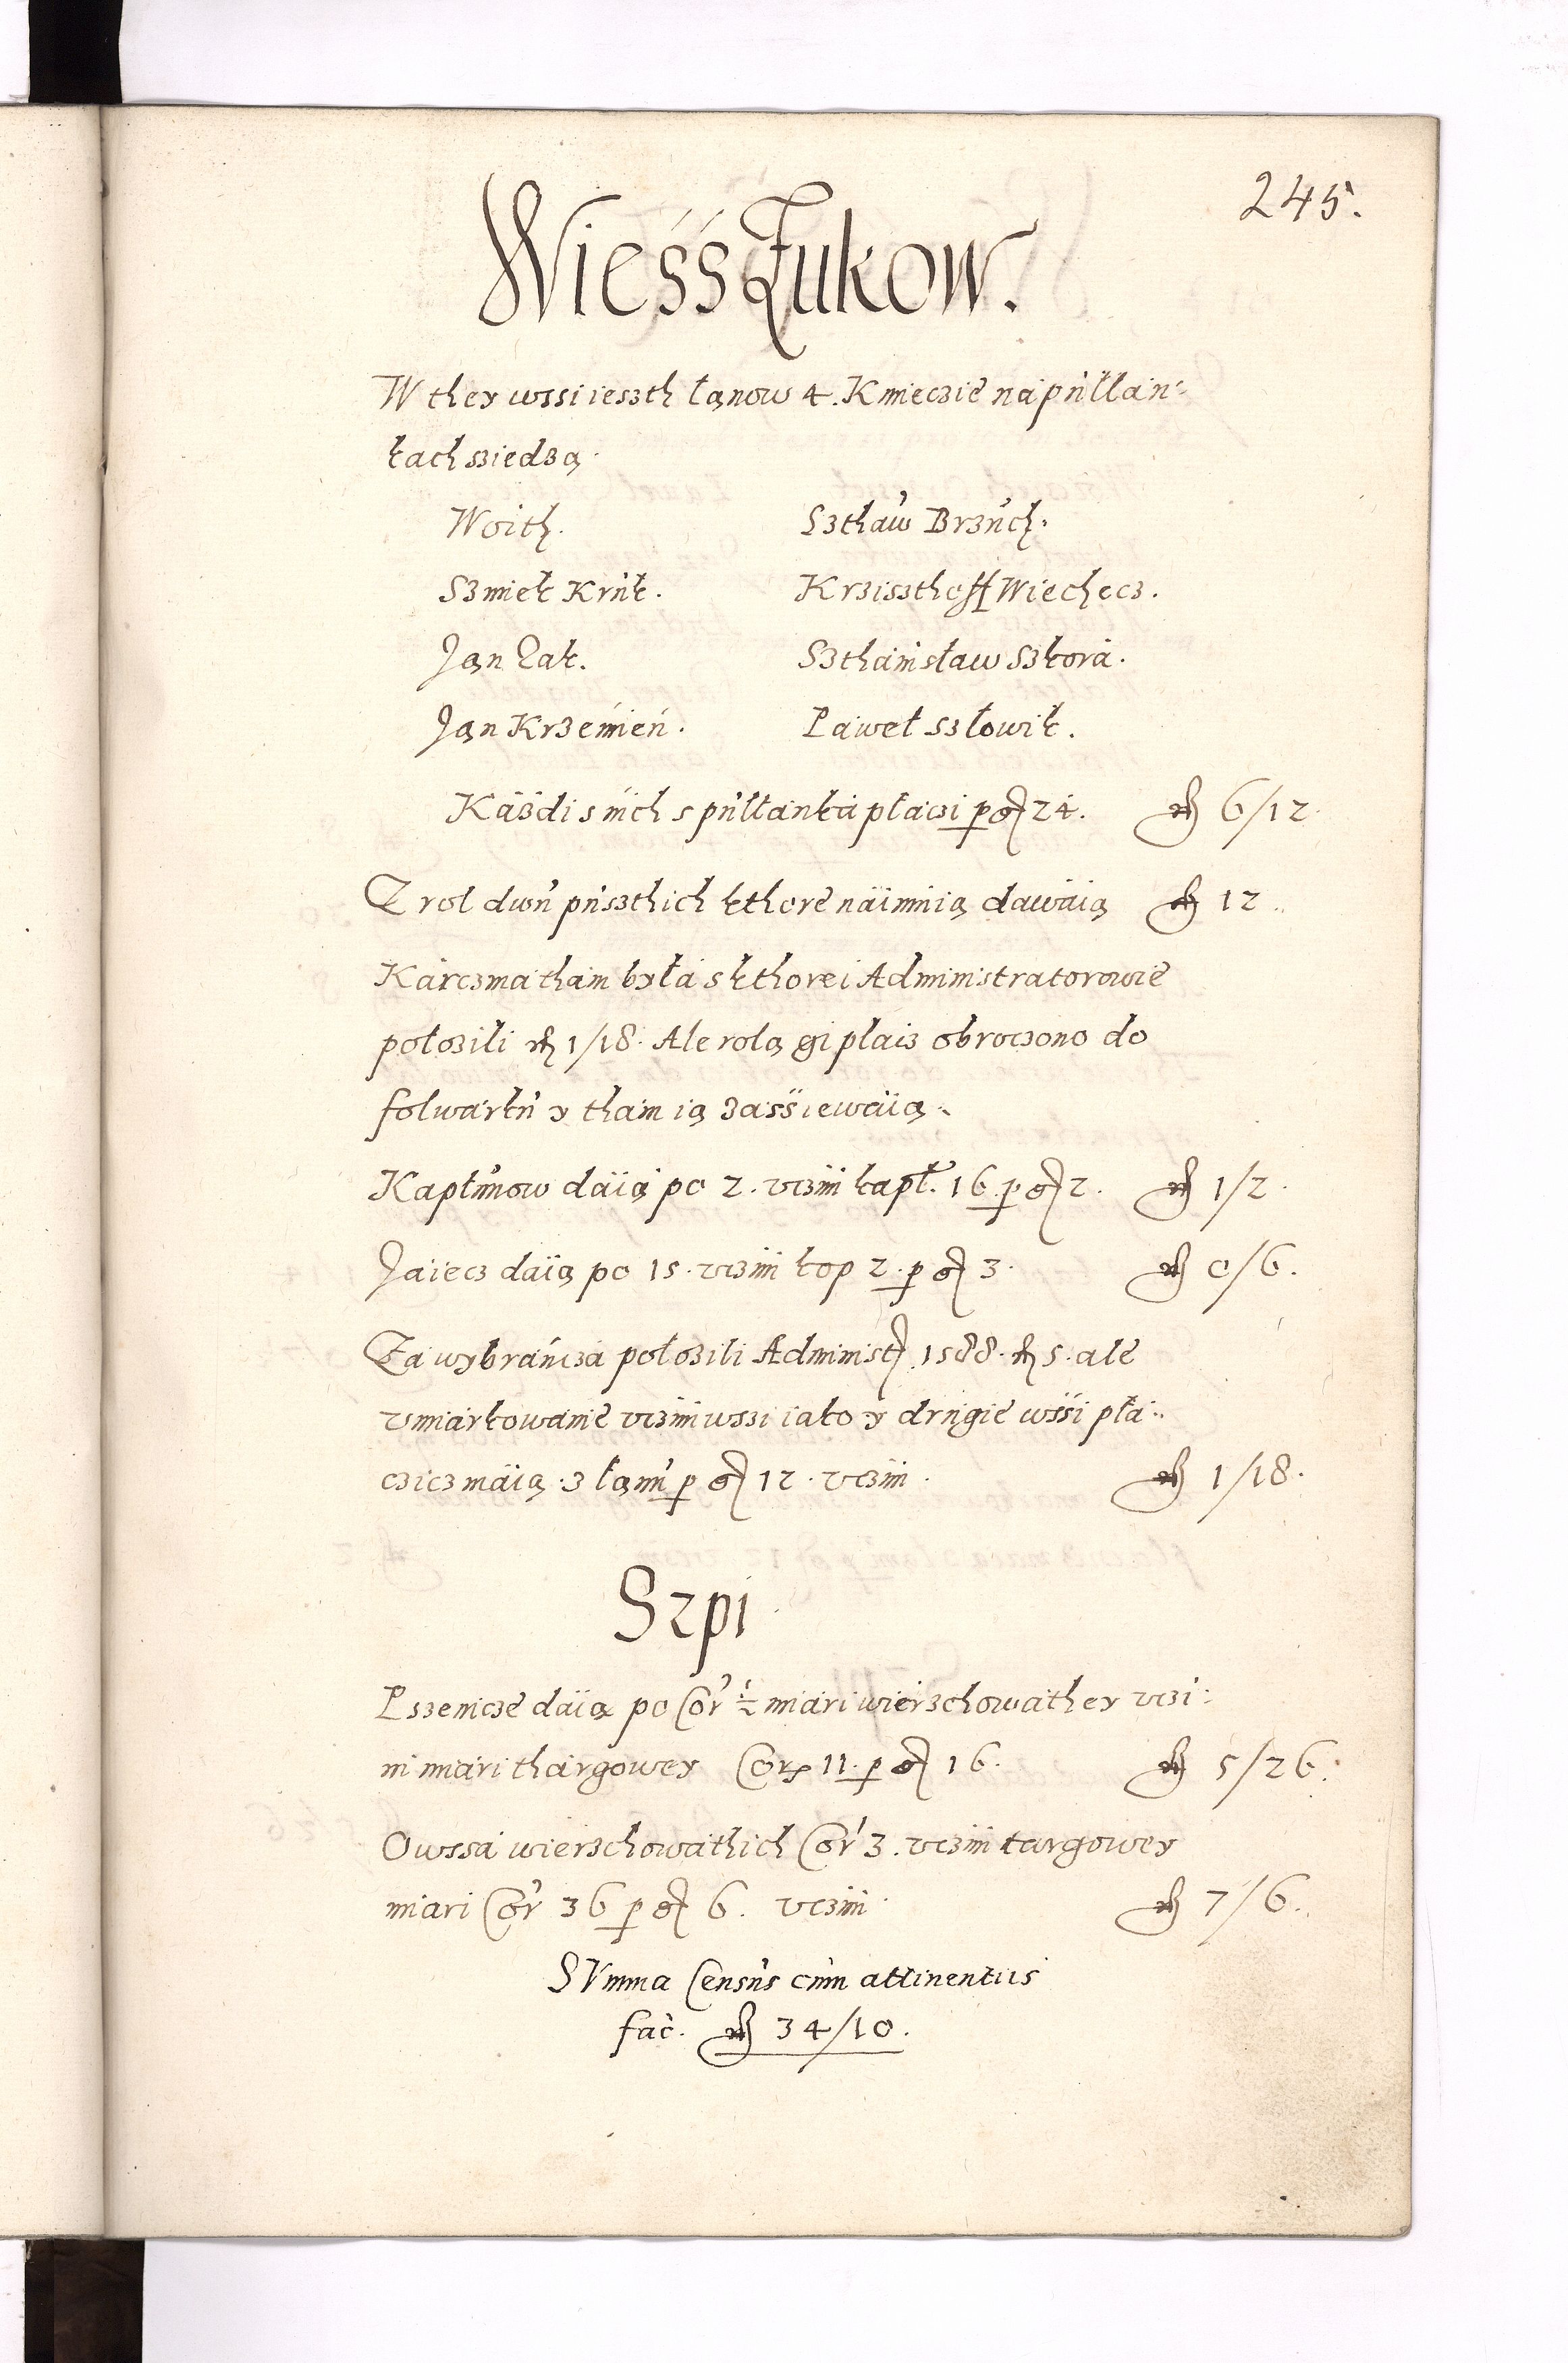 245.
Wieśś Żukow.
W they wssi iesth łanow 4. Kmieczie na pułłan-
kach sziedzą.
Woith.
Szthaw Brzuch.
Szmiek Kruk.
Krzisthoff Wiechecz.
Jan Żak.
Szthanisław Szkora.
Jan Krzemień.
Paweł Szłowik.
Kazdi s nich s pułłanka płaczi p gr 24. fl 6/12.
Z rol dwu pusthich kthore naimuią dawaią fl 12.
Karczma tham była s kthorei Administratorowie
położili fl 1/18. Ale rolą gi plaicz obroczono do
folwarku y tham ią zassiewaią.
Kapłunow daią po 2. vczini kapł. 16. p gr 2. fl 1/2.
Jaiecz daią po 15. vczini kop 2. p gr 3. fl 0/6.
Za wybrańcza położili Administr. 1588. fl 5. ale
vmiarkowanie vczini wssi iako y drugie wssi pła-
czicz maią. z łanu p gr 12. vczini. fl 1/18.
Szpi
Pszenicze daią po Cor ½ miari wierzchowathey vczi-
ni miari thargowey Cor 11. p gr 16. fl 5/26.
Owssa wierzchowathich Cor 3. vczini targowey
miari Cor 36 p gr 6. vczini. fl 7/6.
SVmma Census cum attinentiis
fac. fl 34/10.